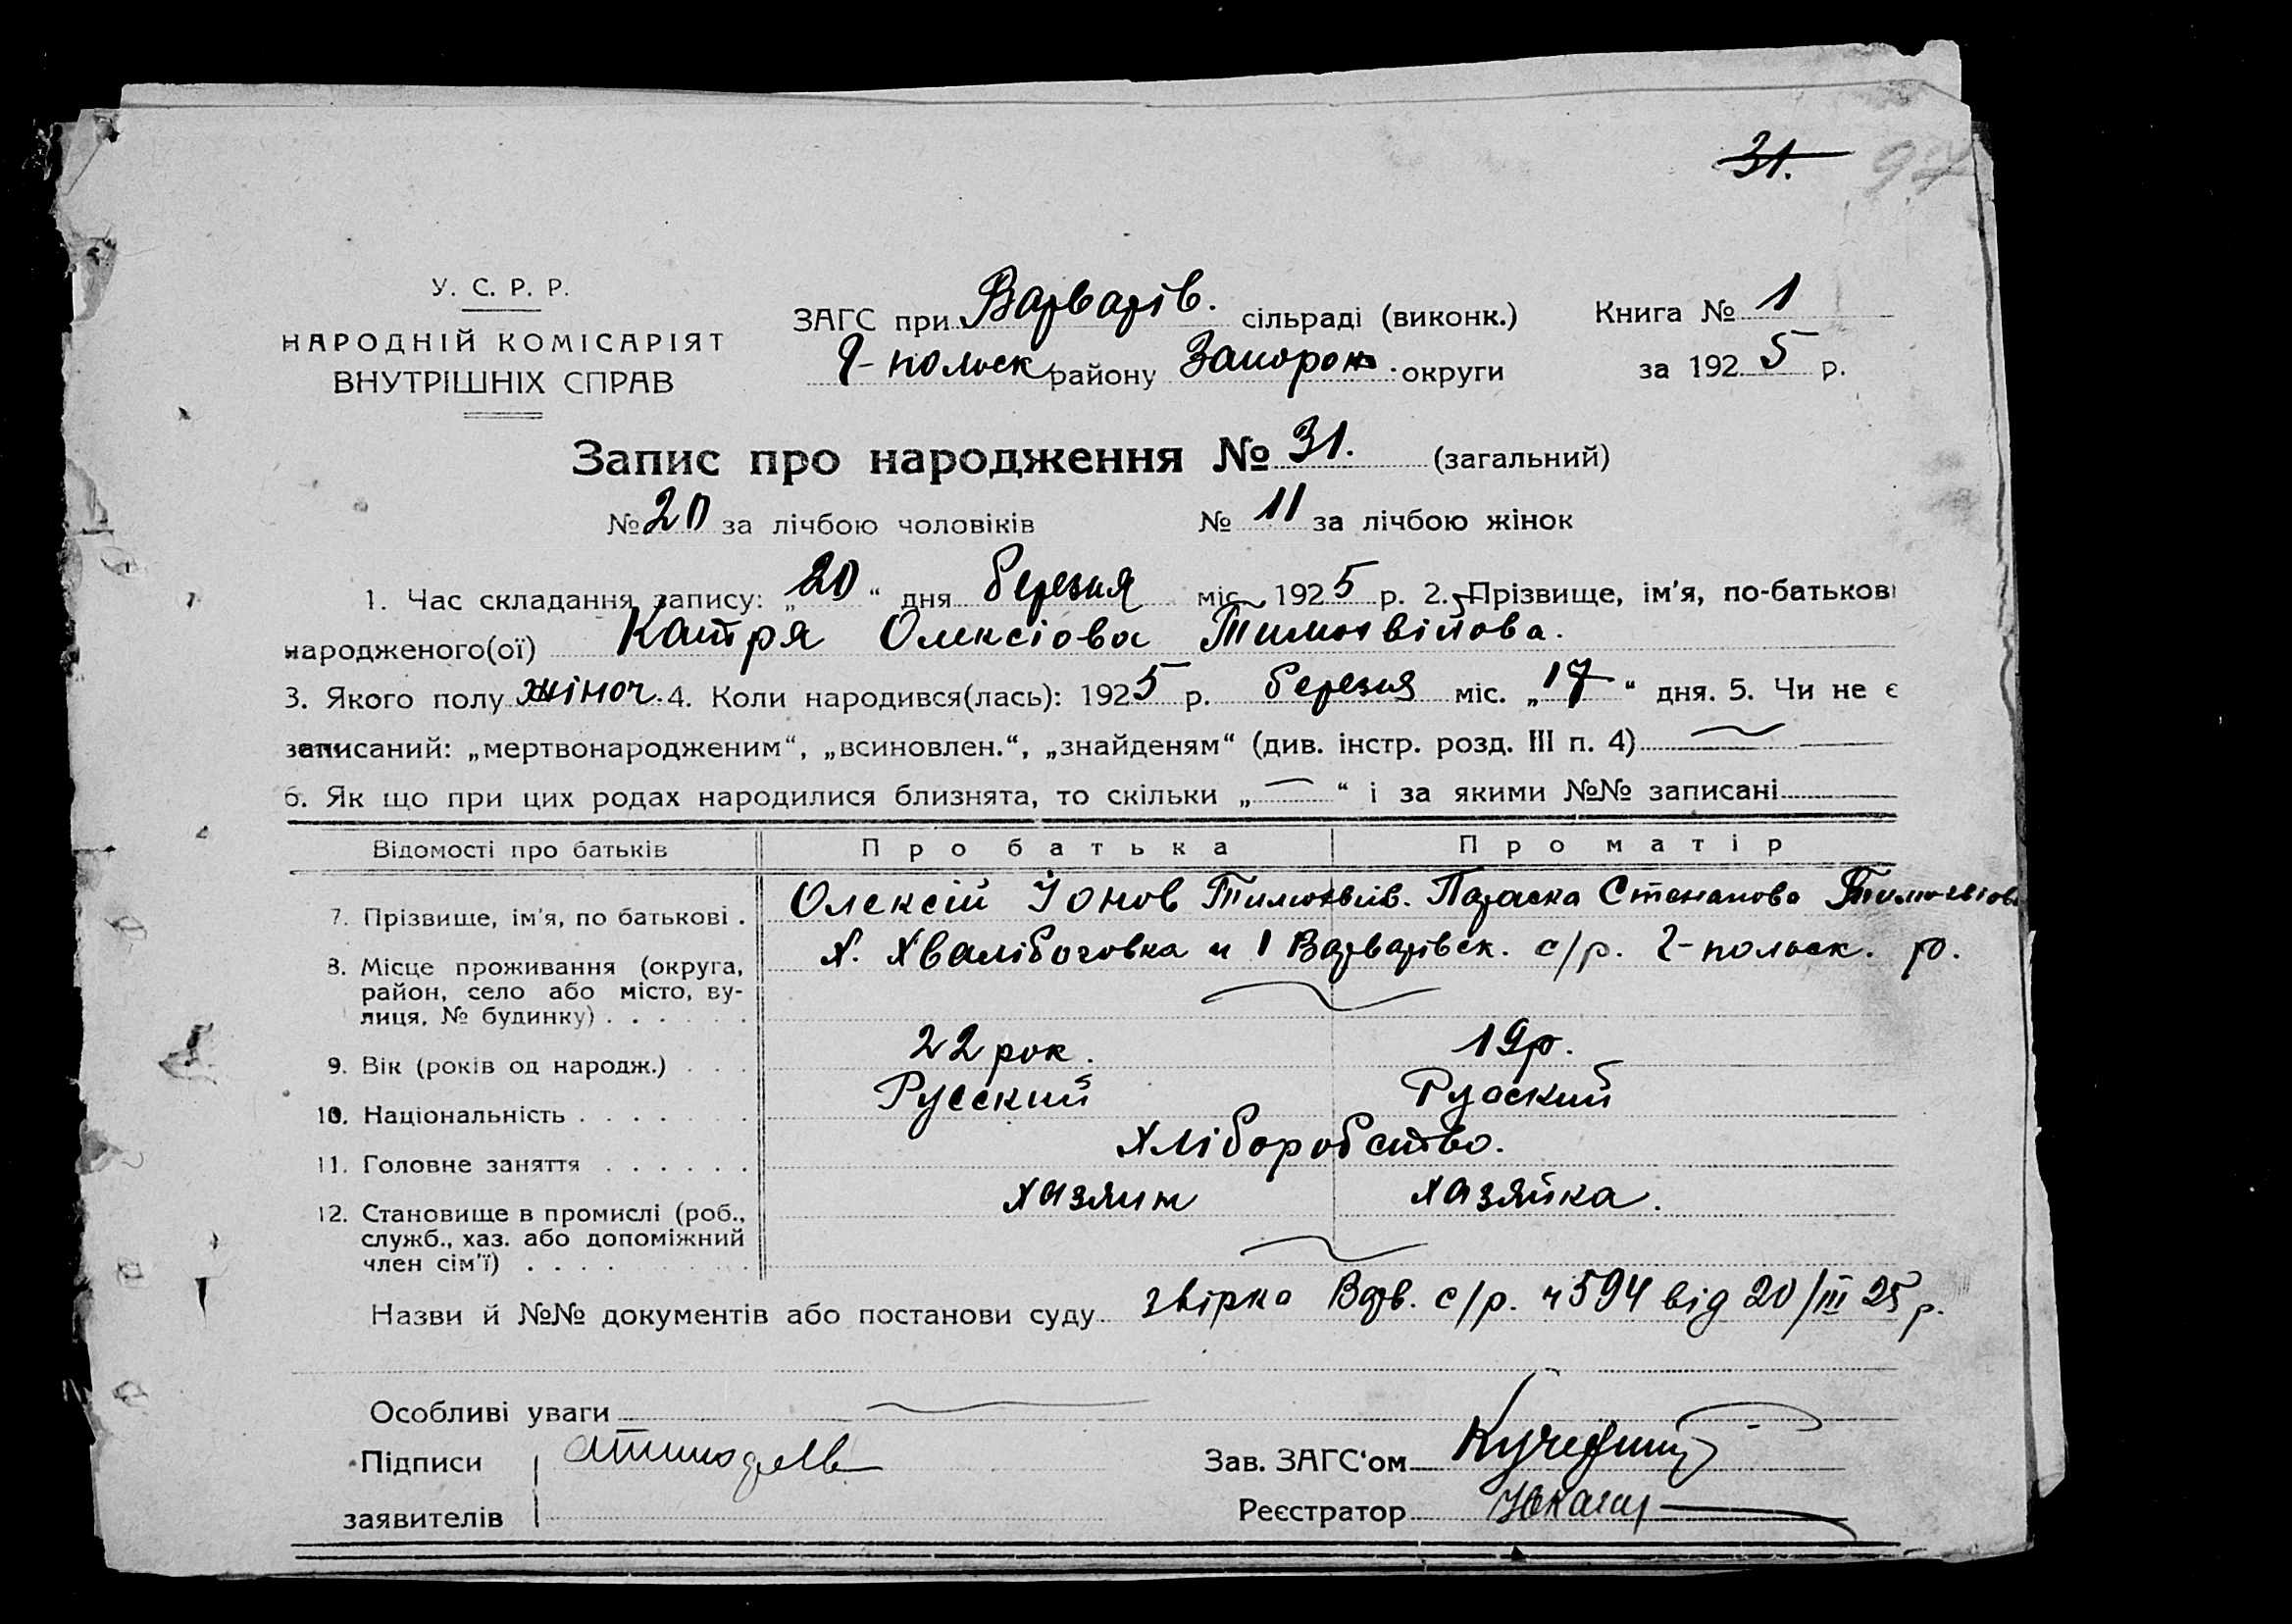 31. 97
У. С. Р. Р.
НАРОДНІЙ КОМІСАРІЯТ
ВНУТРІШНІХ СПРАВ
ЗАГС при Варварів. сільраді (виконк.)
Г-польск району Запорож. округи
Книга № 1
за 1925 р.
Запис про народження № 31. (загальний)
№ 20 за лічбою чоловіків № 11 за лічбою жінок
1. Час складання запису: „20“ дня березня міс. 1925 р. 2. Прізвище, ім'я, по-батькові
народженого(ої) Катря Олексіова
3. Якого полу жіноч. 4. Коли народився(лась): 1925 р. березня міс. „17“ дня. 5. Чи не є
записаний: „мертвонародженим“, „всиновлен.“, „знайденям“ (див. інстр. розд. III п. 4)
6. Як що при цих родах народилися близнята, то скільки „—“ і за якими №№ записані
Відомості про батьків Про батька Про матір
7. Прізвище, ім'я, по батькові . Олексій Йонов Параска Степанова
8. Місце проживання (округа, х. Хвалібоговка 1 Варварівск. с/р. Г-польск. р.
район, село або місто, ву-
лиця, № будинку) . . . . . .
9. Вік (років од народж.) . . . 22 рок. 19 р.
10. Національність . . . . . . . Русский Руский
11. Головне заняття . . . . . . Хліборобство.
12. Становище в промислі (роб., хазяин хазяйка.
служб., хаз. або допоміжний
член сім'ї) . . . .
Назви й №№ документів або постанови суду звірка Варв. с/р. ч 594 від 20/III 25 р.
Особливі уваги
Підписи
заявителів
Зав. ЗАГС'ом
Реєстратор